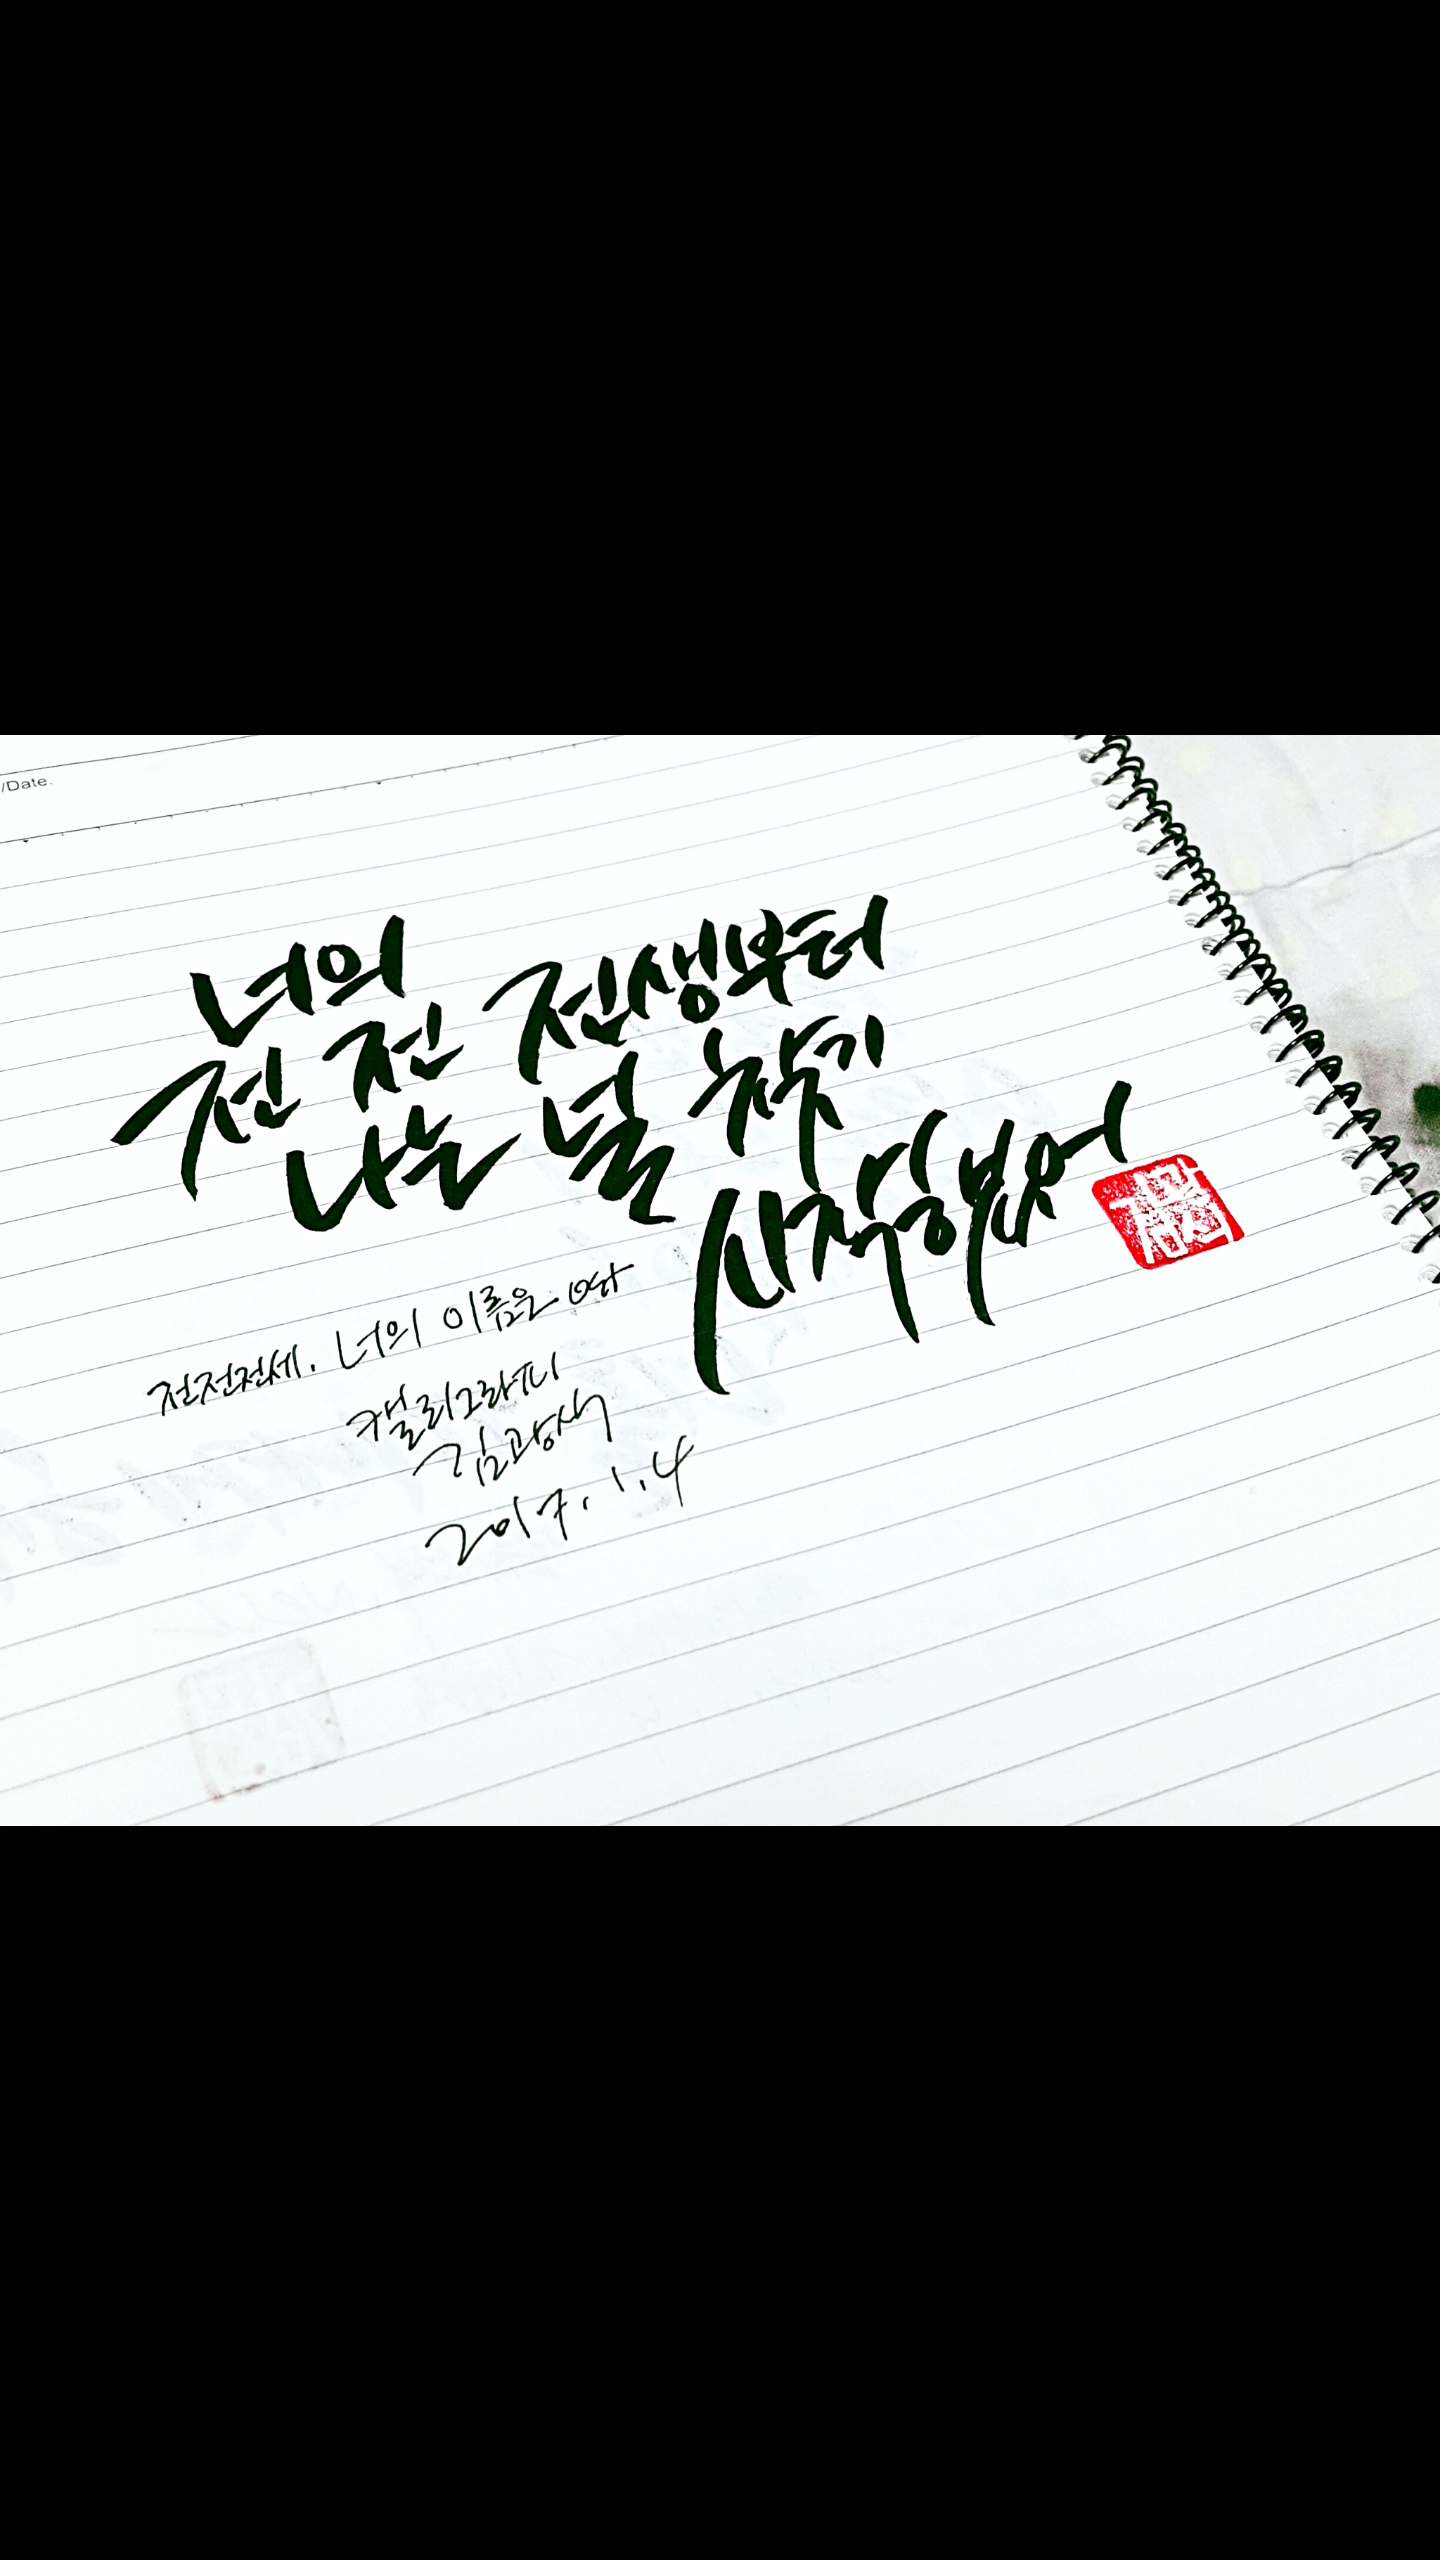 /Date.
너의
전 전 전생부터
나는 널 찾기
시작했어
전전전세. 너의 이름은. ost
캘리그라피
김광식
2017.1.4